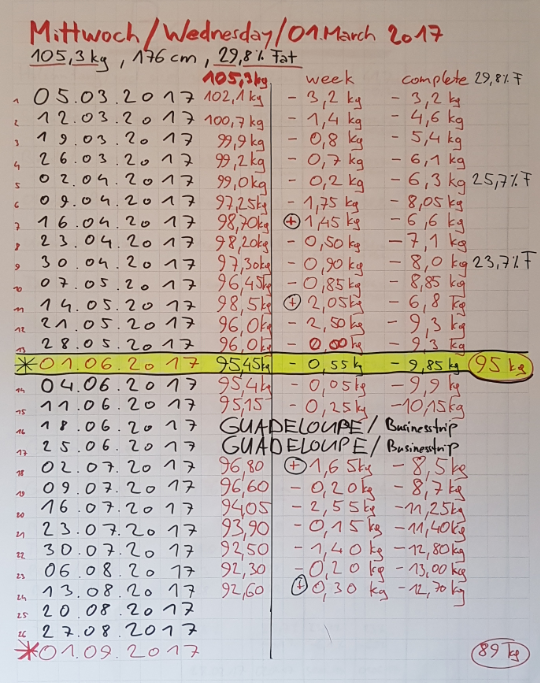 Mittwoch/Wednesday/01.March 2017
105,3 kg, 176 cm, 29,8% Fat
105,3kg week complete 29,8% F
1 05.03.2017 102,1 kg - 3,2 kg - 3,2 kg
2 12.03.2017 100,7 kg - 1,4 kg - 4,6 kg
3 19.03.2017 99,9 kg - 0,8 kg - 5,4 kg
4 26.03.2017 99,2 kg - 0,7 kg - 6,1 kg
5 02.04.2017 99,0 kg - 0,2 kg - 6,3 kg 25,7% F
6 09.04.2017 97,25 kg - 1,75 kg - 8,05 kg
7 16.04.2017 98,70 kg + 1,45 kg - 6,6 kg
8 23.04.2017 98,20 kg - 0,50 kg - 7,1 kg
9 30.04.2017 97,30 kg - 0,90 kg - 8,0 kg 23,7% F
10 07.05.2017 96,45 kg - 0,85 kg - 8,85 kg
11 14.05.2017 98,5 kg + 2,05 kg - 6,8 kg
12 21.05.2017 96,0 kg - 2,50 kg - 9,3 kg
13 28.05.2017 96,0 kg - 0,00 kg - 9,3 kg
* 01.06.2017 95,45 kg - 0,55 kg - 9,85 kg 95 kg
14 04.06.2017 95,4 kg - 0,05 kg - 9,9 kg
15 11.06.2017 95,15 - 0,25 kg - 10,15 kg
16 18.06.2017 GUADELOUPE/Businesstrip
17 25.06.2017 GUADELOUPE/Businesstrip
18 02.07.2017 96,80 + 1,65 kg - 8,5 kg
19 09.07.2017 96,60 - 0,20 kg - 8,7 kg
20 16.07.2017 94,05 - 2,55 kg - 11,25 kg
21 23.07.2017 93,90 - 0,15 kg - 11,40 kg
22 30.07.2017 92,50 - 1,40 kg - 12,80 kg
23 06.08.2017 92,30 - 0,20 kg - 13,00 kg
24 13.08.2017 92,60 + 0,30 kg - 12,70 kg
25 20.08.2017
26 27.08.2017
* 01.09.2017 89 kg